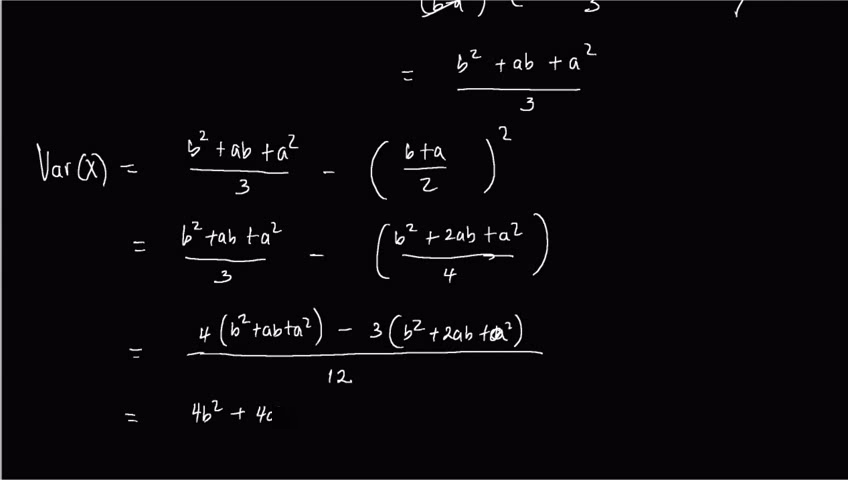 = (b² + ab + a²)/3
Var(X) = (b² + ab + a²)/3 - ((b+a)/2)²
= (b² + ab + a²)/3 - ((b² + 2ab + a²)/4)
= (4(b² + ab + a²) - 3(b² + 2ab + a²))/12
= 4b² + 4a